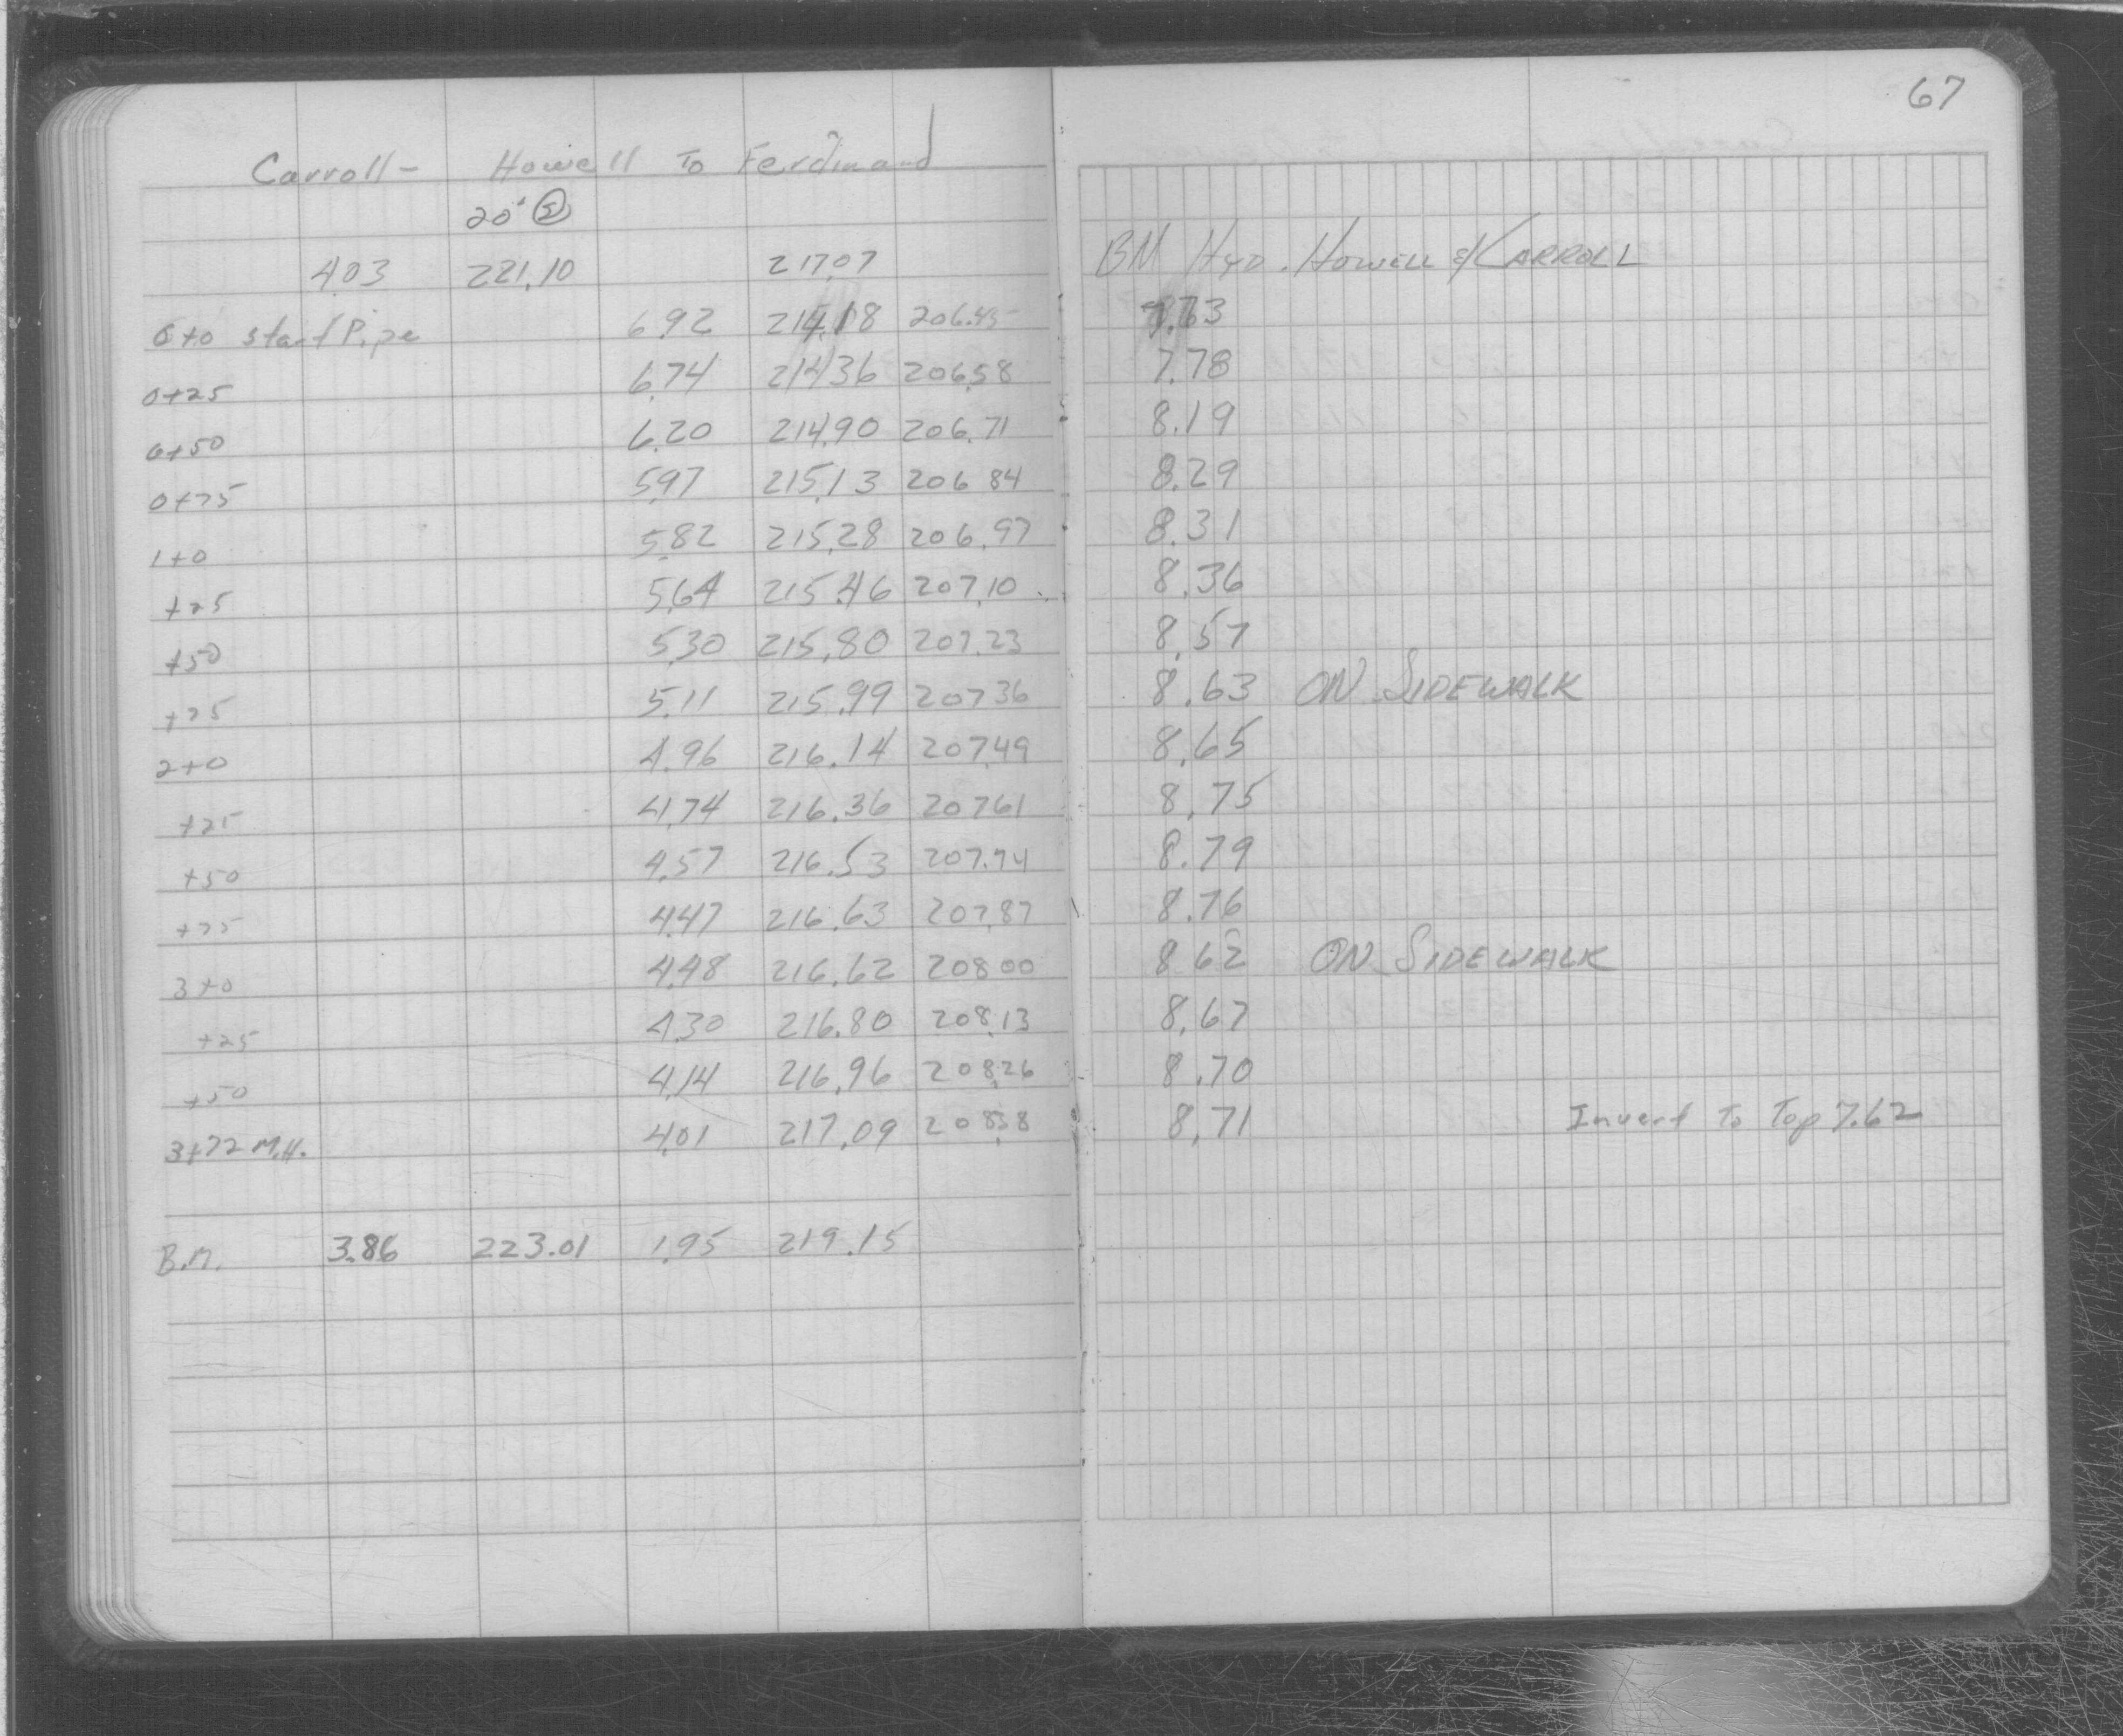 67
Carroll - Howell To Ferdinand
20' Ⓢ
4.03 221.10 217.07 BM HYD. HOWELL & CARROLL
0+0 start Pipe 6.92 214.18 206.45 7.73
0+25 6.74 214.36 206.58 7.78
0+50 6.20 214.90 206.71 8.19
0+75 5.97 215.13 206.84 8.29
1+0 5.82 215.28 206.97 8.31
+25 5.64 215.46 207.10 8.36
+50 5.30 215.80 207.23 8.57
+75 5.11 215.99 207.36 8.63 ON SIDEWALK
2+0 4.96 216.14 207.49 8.65
+25 4.74 216.36 207.61 8.75
+50 4.57 216.53 207.74 8.79
+75 4.47 216.63 207.87 8.76
3+0 4.48 216.62 208.00 8.62 ON SIDEWALK
+25 4.30 216.80 208.13 8.67
+50 4.14 216.96 208.26 8.70
3+72 M.H. 4.01 217.09 208.38 8.71 Invert To Top 7.62
B.M. 3.86 223.01 1.95 219.15